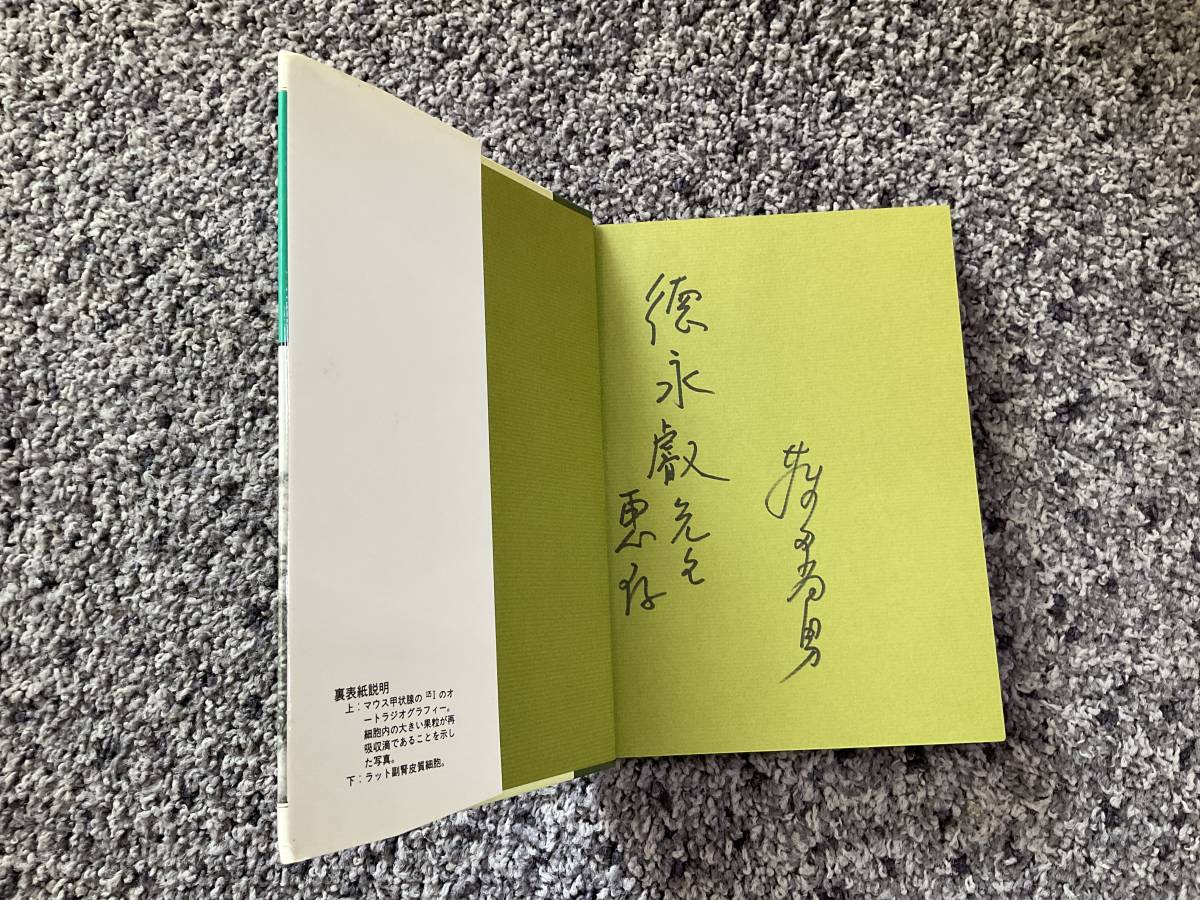 德永叡先生
惠存
裏表紙説明
上：マウス甲状腺の ¹²⁵I のオ
ートラジオグラフィー。
細胞内の大きい果粒が再
吸収滴であることを示し
た写真。
下：ラット副腎皮質細胞。